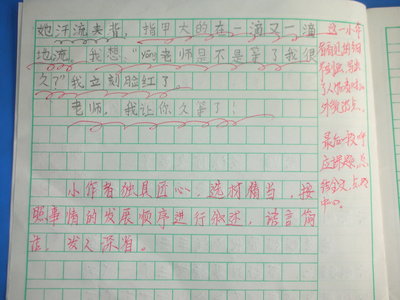 她汗流夹背，指甲大的在一滴又一滴
地流。我想："yang老师是不是等了我很
久了"我立刻脸红了。
老师，我让你久等了！
小作者独具匠心，选材精当，按
照事情的发展顺序进行叙述，语言简
洁，发人深省。
这一小作
者
了人物
外貌特点。
最后一段呼
应课题，总
结全文，点明
中心。